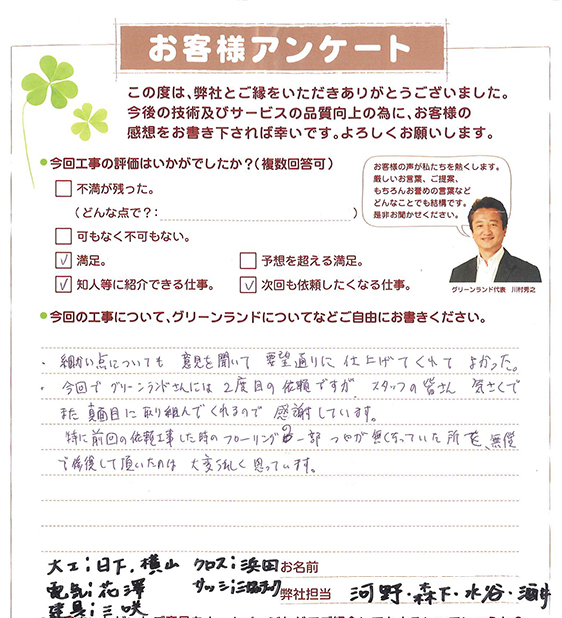 お客様アンケート
この度は、弊社とご縁をいただきありがとうございました。
今後の技術及びサービスの品質向上の為に、お客様の
感想をお書き下されば幸いです。よろしくお願いします。
今回工事の評価はいかがでしたか？（複数回答可）
不満が残った。
（どんな点で？： ）
可もなく不可もない。
満足。
予想を超える満足。
知人等に紹介できる仕事。
次回も依頼したくなる仕事。
お客様の声が私たちを熱くします。
厳しいお言葉、ご提案、
もちろんお誉めの言葉など
どんなことでも結構です。
是非お聞かせください。
グリーンランド代表 川村秀之
今回の工事について、グリーンランドについてなどご自由にお書きください。
・細かい点についても 意見を聞いて 要望通りに 仕上げてくれて よかった。
・今回でグリーンランドさんには2度目の依頼ですが、スタッフの皆さん 気さくで
また真面目に取り組んでくれるので 感謝しています。
特に前回の依頼工事した時のフローリングの一部 つやが無くなっていた所を、無償
で修復して頂いたのは 大変うれしく思っています。
大工：日下、横山 クロス：浜田
お名前
電気：花澤 サッシ：
弊社担当 河野・森下・水谷・酒井
建具：三咲